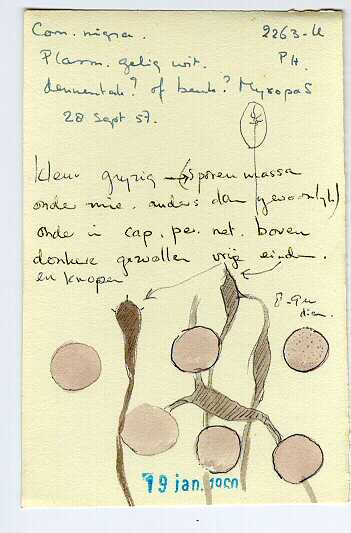 Com. nigra. 2263-U
Plasm. gelig wit. PH.
dennentak? of berk? Myxopas
28 Sept 57.
kleur gryzig (Sporenmassa
onder mic. anders dan gewoonlyk)
onde in cap. per. net. boven
donkere gezwollen vrije einden.
en knopen
8-9µ
diam.
19 jan. 1960